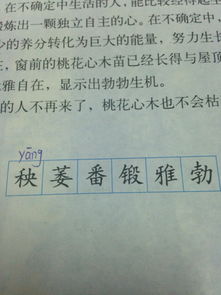 在不确定中生活的人,能比较经得起
炼出一颗独立自主的心。在不确定中,
少的养分转化为巨大的能量,努力生长
,窗前的桃花心木苗已经长得与屋顶
雅自在,显示出勃勃生机。
的人不再来了,桃花心木也不会枯
yāng
秧萎番锻雅勃